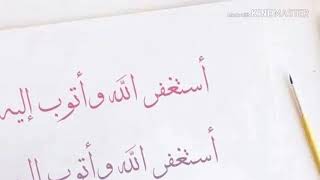 Made with KINEMASTER
أستغفر الله وأتوب إليه
أستغفر الله وأتوب